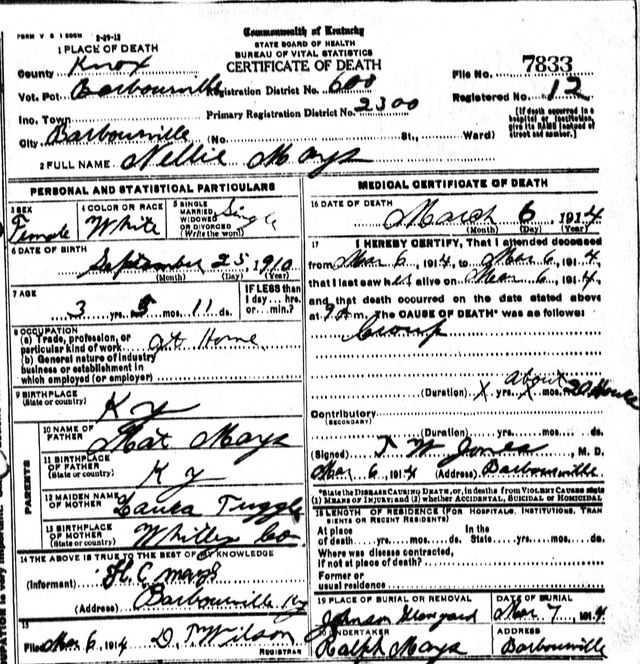 FORM V S 1 500M 2-29-12
Commonwealth of Kentucky
STATE BOARD OF HEALTH
BUREAU OF VITAL STATISTICS
CERTIFICATE OF DEATH
1 PLACE OF DEATH
County Knox
File No. 7833
Vot. Pct Barbourville Registration District No. 600
Registered No. 12
Inc. Town
Primary Registration District No. 2300
[If death occurred in a hospital or institution, give its NAME instead of street and number.]
City Barbourville (No. St., Ward)
2 FULL NAME Nellie Mays
PERSONAL AND STATISTICAL PARTICULARS
3 SEX Female
4 COLOR OR RACE White
5 SINGLE MARRIED, WIDOWED OR DIVORCED (Write the word) Single
6 DATE OF BIRTH
September 25, 1910
(Month) (Day) (Year)
7 AGE
3 yrs. 5 mos. 11 ds.
IF LESS than 1 day... hrs. or... min.?
8 OCCUPATION
(a) Trade, profession, or particular kind of work at Home
(b) General nature of industry business or establishment in which employed (or employer)
9 BIRTHPLACE
(State or country) Ky
PARENTS
10 NAME OF FATHER Mat Mays
11 BIRTHPLACE OF FATHER (State or country) Ky
12 MAIDEN NAME OF MOTHER Laura Tuggle
13 BIRTHPLACE OF MOTHER (State or country) Whitley Co
14 THE ABOVE IS TRUE TO THE BEST OF MY KNOWLEDGE
(Informant) H. C. Mays
(Address) Barbourville Ky
15
Filed Mar 6, 1914 D. T. Wilson
REGISTRAR
MEDICAL CERTIFICATE OF DEATH
16 DATE OF DEATH
March 6, 1914
(Month) (Day) (Year)
17 I HEREBY CERTIFY, That I attended deceased
from Mar 6, 1914, to Mar 6, 1914,
that I last saw her alive on Mar 6, 1914,
and that death occurred on the date stated above
at 9 A m. The CAUSE OF DEATH* was as follows:
Croup
(Duration) X yrs. X mos. About 20 Hours
Contributory
(SECONDARY)
(Duration) yrs. mos. ds.
(Signed) J W Jones, M. D.
Mar 6, 1914 (Address) Barbourville
*State the DISEASE CAUSING DEATH, or, in deaths from VIOLENT CAUSES state (1) MEANS OF INJURY; and (2) whether ACCIDENTAL, SUICIDAL OR HOMICIDAL
18 LENGTH OF RESIDENCE (FOR HOSPITALS, INSTITUTIONS, TRANSIENTS OR RECENT RESIDENTS)
At place of death yrs. mos. ds. In the State yrs. mos. ds.
Where was disease contracted, if not at place of death?
Former or usual residence
19 PLACE OF BURIAL OR REMOVAL
Johnson Graveyard
DATE OF BURIAL
Mar 7 1914
20 UNDERTAKER
Ralph Mays
ADDRESS
Barbourville